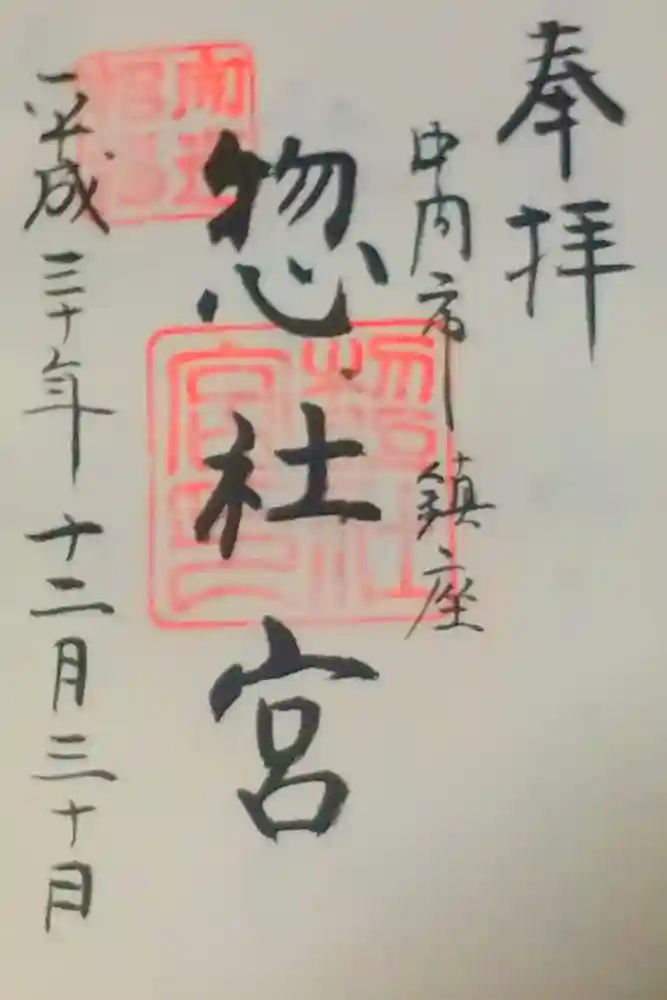 奉拝
中内市鎮座
惣社宮
平成三十年十二月三十日
惣社宮印